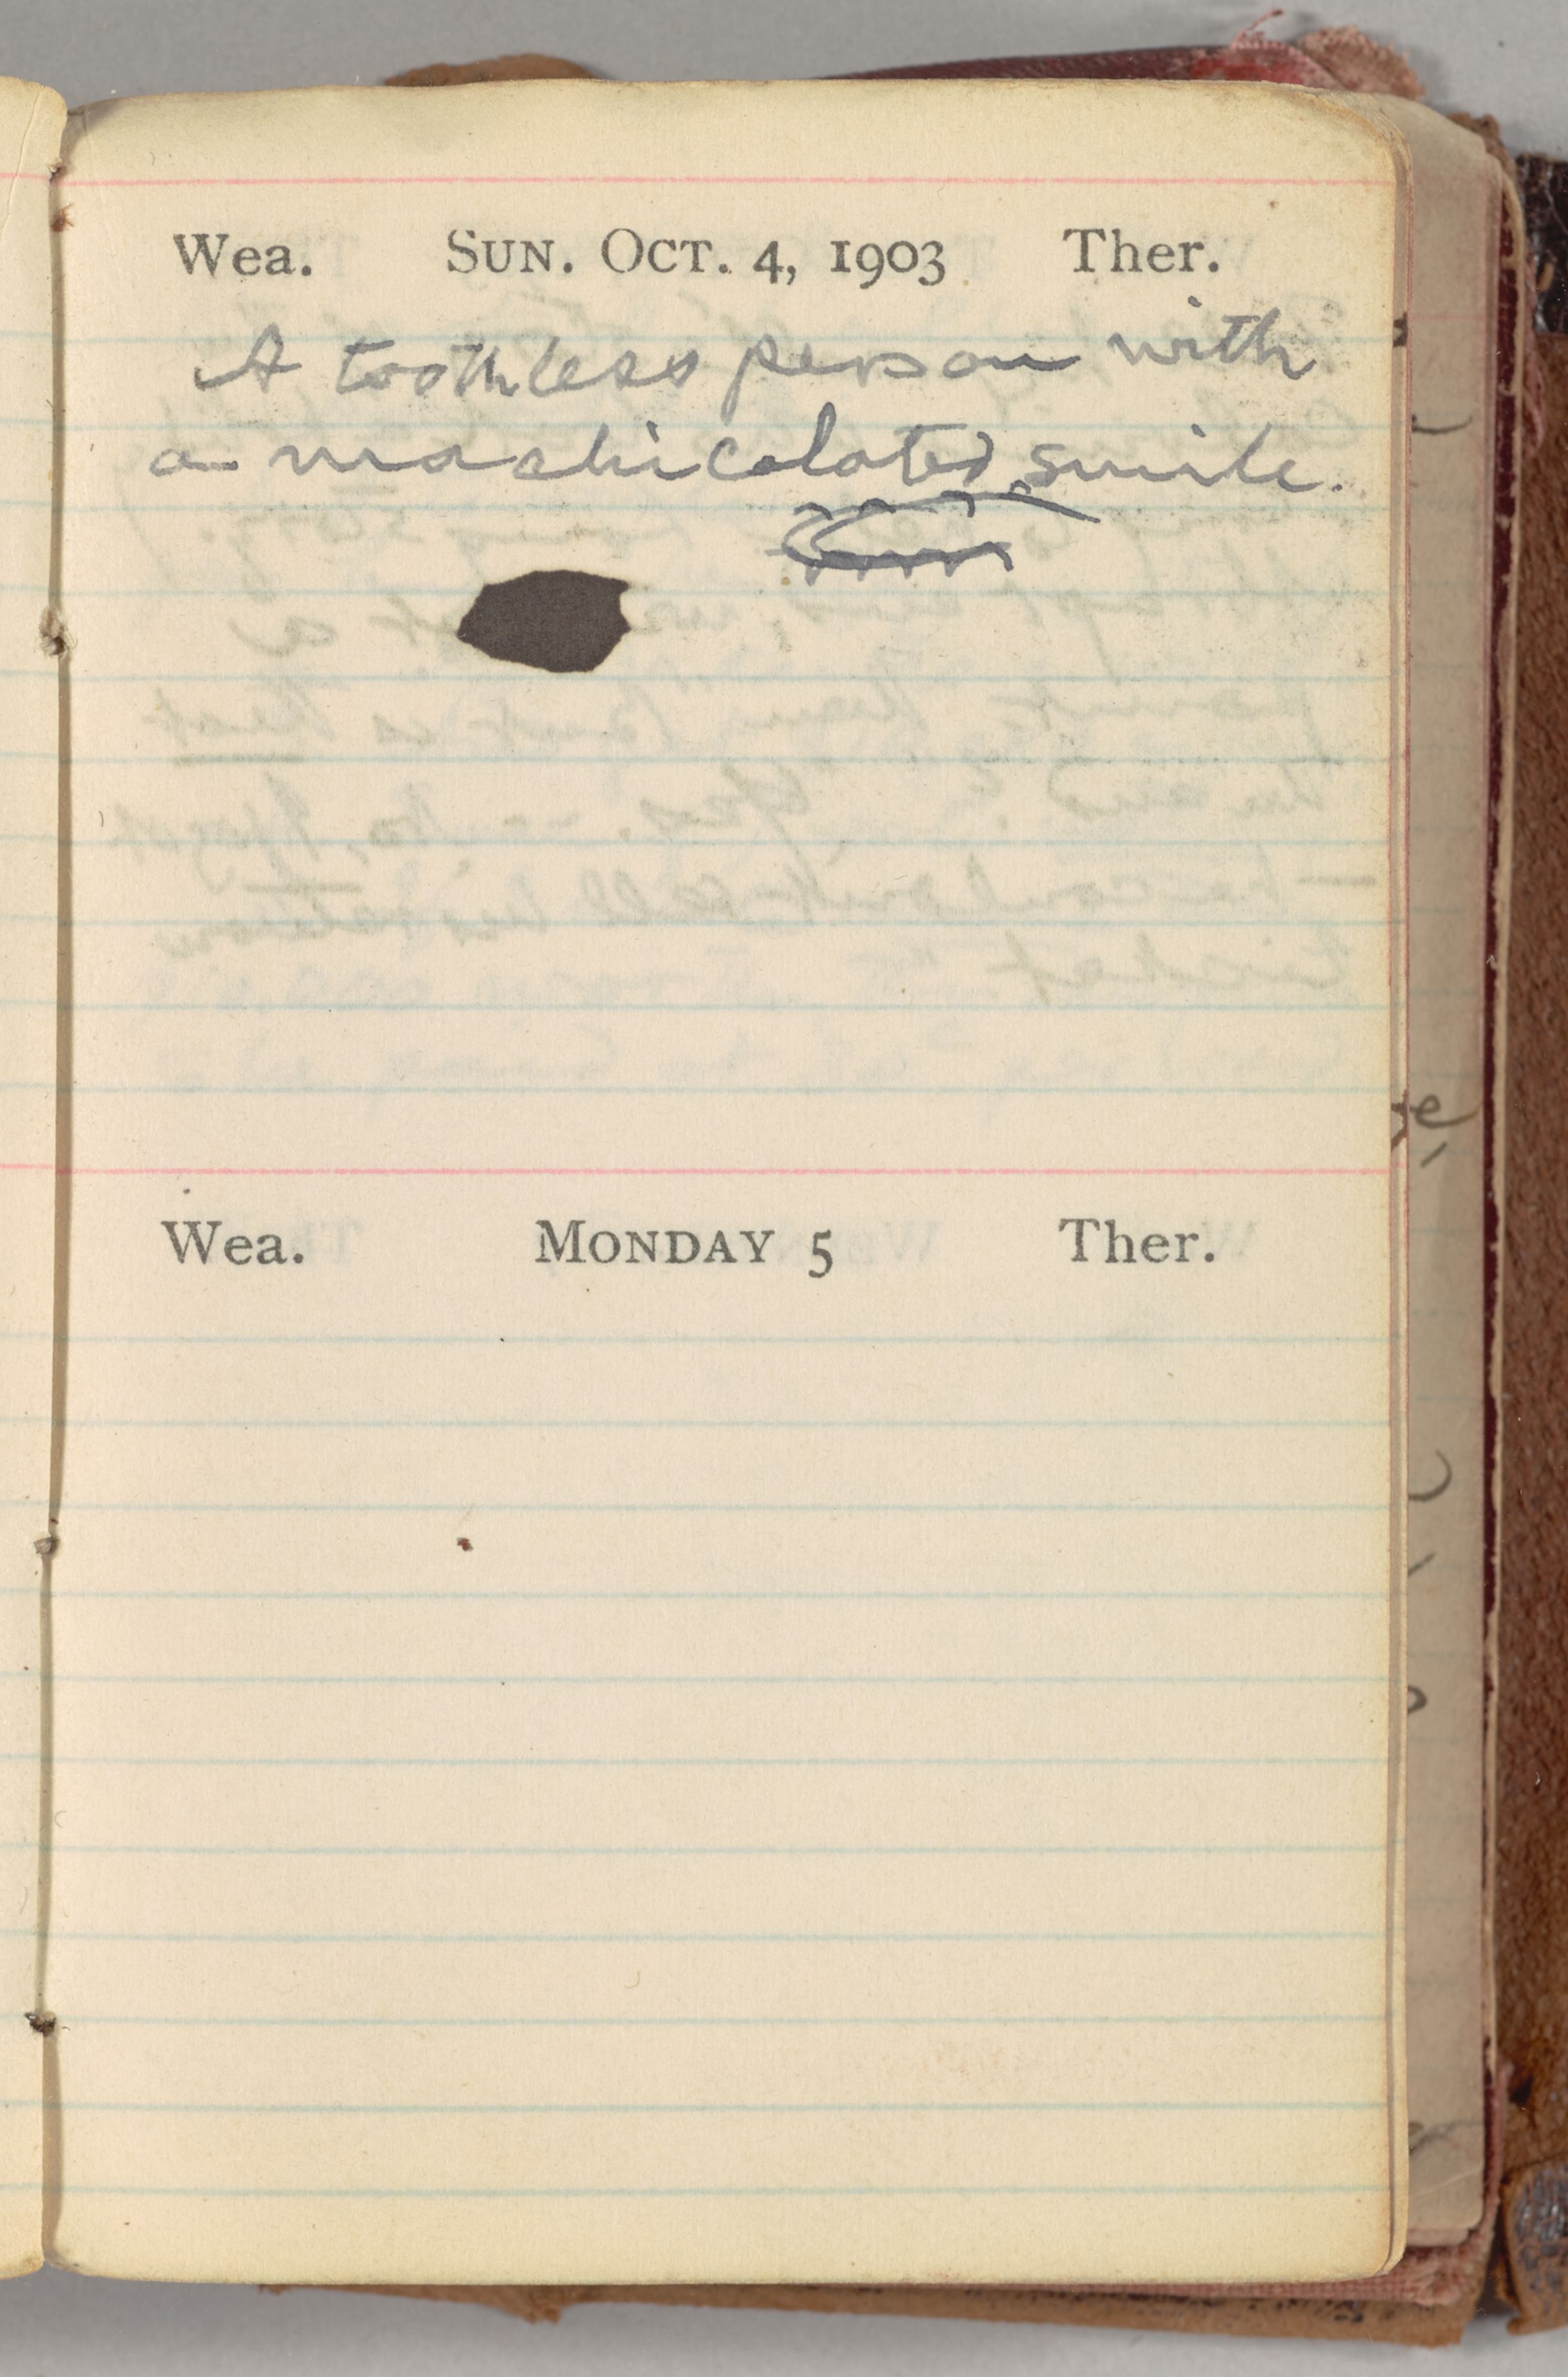 Wea. SUN. OCT. 4, 1903 Ther.
A toothless person with
a machicolated smile.
Wea. MONDAY 5 Ther.